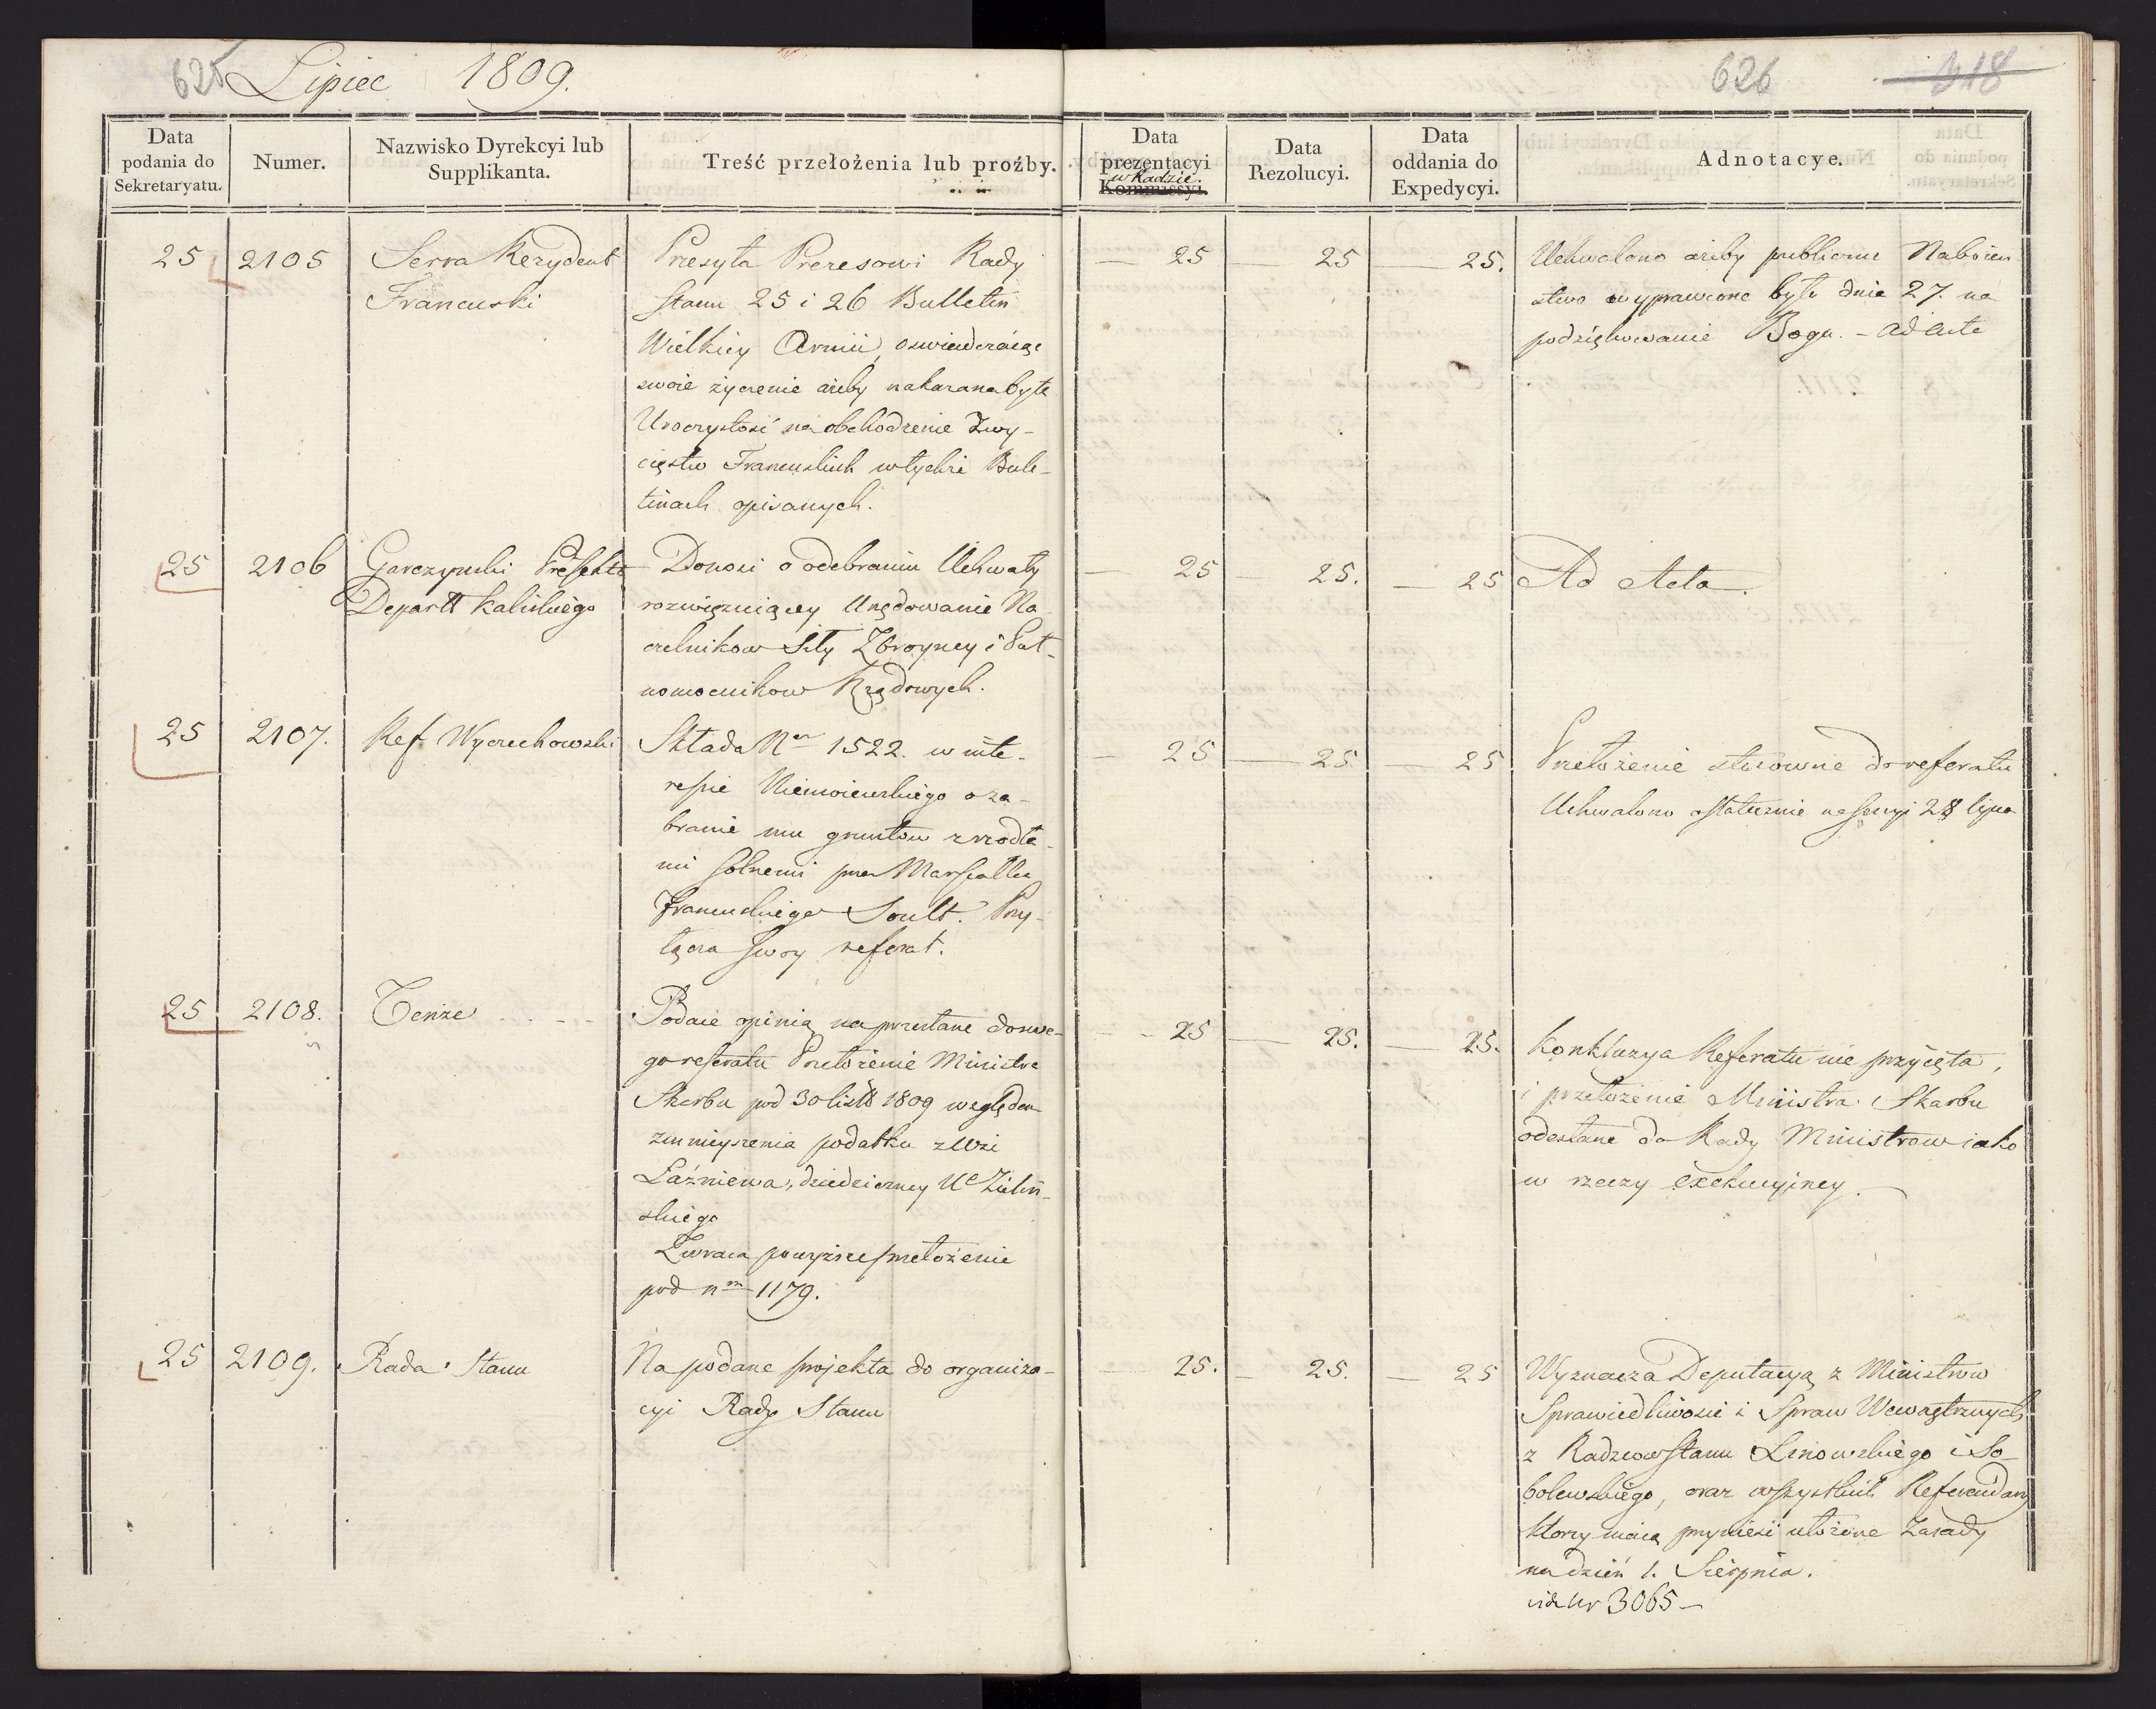 625 Lipiec 1809.
626 318
Data podania do Sekretaryatu.
Numer.
Nazwisko Dyrekcyi lub Supplikanta.
Treść przełożenia lub proźby.
Data prezentacyi w Radzie. Kommissyi.
Data Rezolucyi.
Data oddania do Expedycyi.
Adnotacye.
25 2105 Serra Rezydent
Francuski
Przesyła Prezesowi Rady
Stanu 25 i 26 Bulletin
Wielkiey Armii, oswiadczaiąc
swoie życzenie ażeby nakazana była
Uroczystość na obchodzenie Zwy-
cięstw Francuskich w tychże Bule-
tinach opisanych.
25 25 25.
Uchwalono ażeby publiczne Nabożeń
stwo wyprawione było dnia 27. na
podziękowanie Bogu. - ad acta
25 2106 Garczynski Prefekt
Departt Kaliskiego
Donosi o odebraniu Uchwały
rozwięzuiącey Urzędowanie Na
czelnikow Siły Zbroyney i Peł-
nomocnikow Rządowych.
25 25. 25
Ad Acta.
25 2107. Ref Wyczechowski
Składa Ner 1522. w inte-
resie Niemoiewskiego o za-
branie mu gruntow z rzodła-
mi solnemi przez Marszałka
Francuskiego Soult. Przy-
łącza swoy referat.
25 25 25
Przełożenie stosowne do referatu
Uchwalono ostatecznie na sessyi 28 lipca
25 2108. Tenże
Podaie opinią na przesłane do swe-
go referatu Przełożenie Ministra
Skarbu pod 30 1809 względem
zmnieyszenia podatku z Wsi
Łaźniewa, dziedziczney Ue Zieliń-
skiego
Zwraca powyższe przełożenie
pod nrm 1179.
25 25. 25.
Konkluzya Referatu nie przyięta,
i przełożenie Ministra Skarbu
odesłane do Rady Ministrow iako
w rzeczy exekucyiney.
25 2109. Rada Stanu
Na podane projekta do organiza-
cyi Rady Stanu
25. 25. 25
Wyznacza Deputacyą z Ministrow
Sprawiedliwosci i Spraw Wewnętrznych
z Radzcow Stanu Linowskiego i So-
bolewskiego, oraz wszystkich Referendarzy
ktorzy maią przynieść ułożone Zasady
na dzień 1. Sierpnia.
vide Nr 3065 -